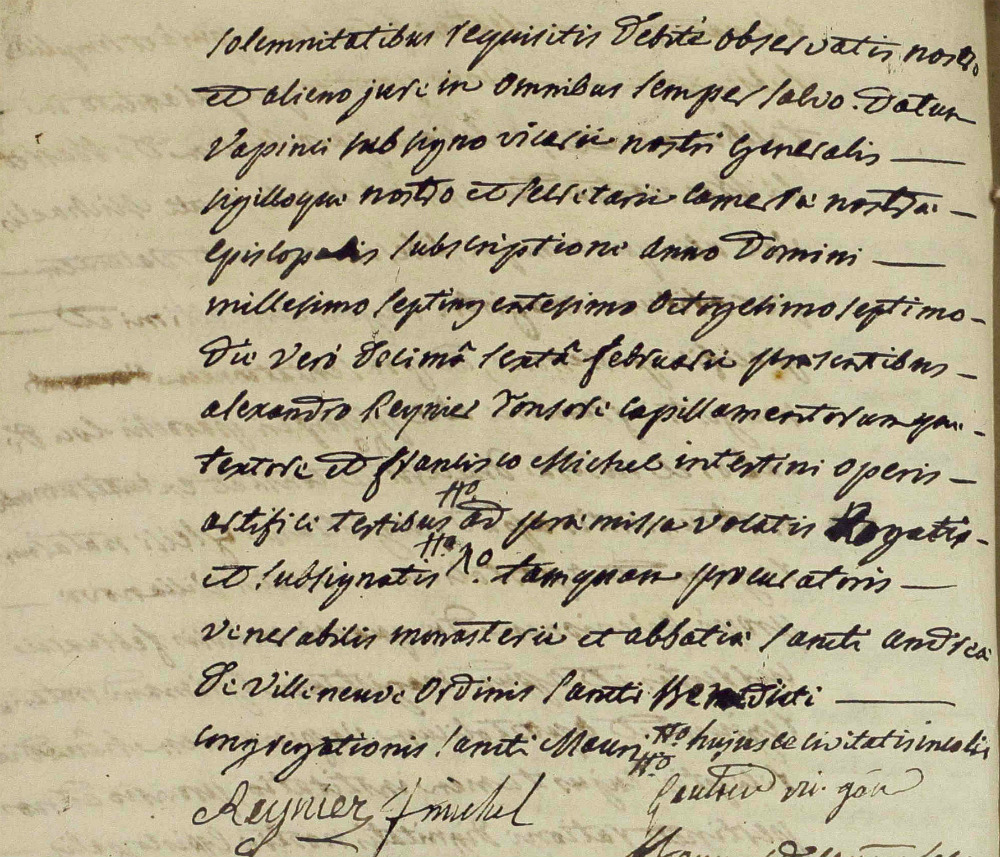 solemnitatibus requisitis debitè observatis nostro
et alieno jure in omnibus semper salvo. Datum
Vapinci sub signo vicarii nostri generalis —
sigilloque nostro et secretarii cameræ nostræ —
episcopalis subscriptione anno Domini —
millesimo septingentesimo octogesimo septimo —
die vero decimâ sextâ februarii præsentibus —
alexandro Reynier tonsore capillamentorum que —
textore et francisco Michel intestini operis —
artifice testibus ad præmissa vocatis Rogatis —
et subsignatis tamquam procuratoris —
venerabilis monasterii et abbatiæ sancti andreæ
de villeneuve ordinis sancti Benedicti —
congregationis sancti Mauri hujusce civitatis incolis
Reynier f michel vic. gen